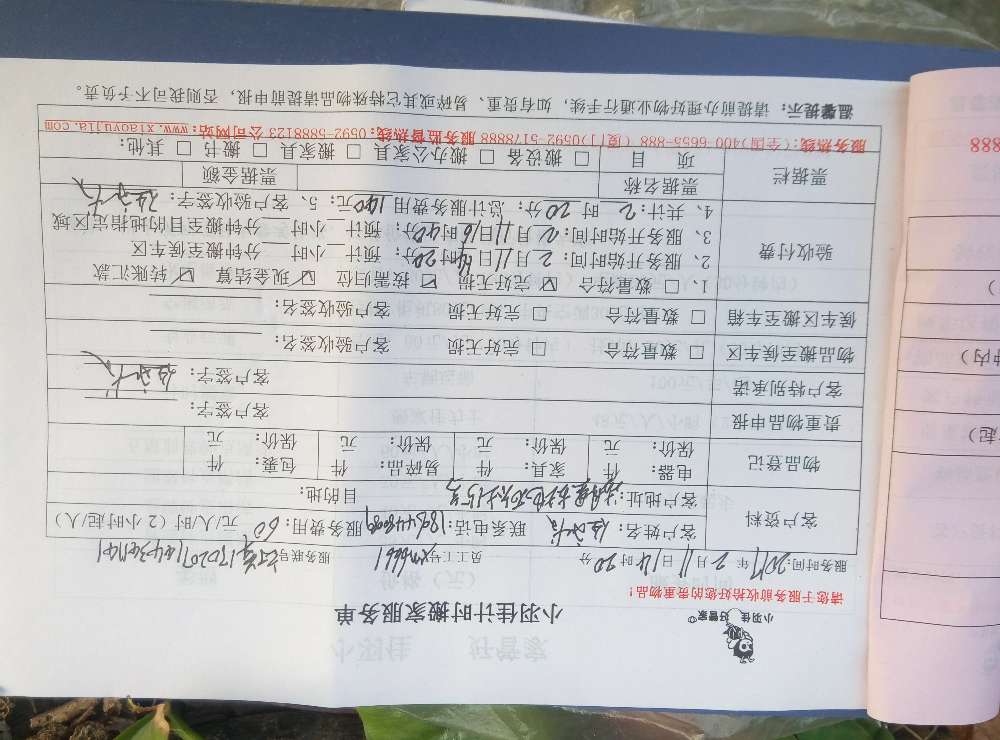 小羽佳 好管家
小羽佳计时搬家服务单
请您于服务前收拾好您的贵重物品！
服务时间:2017 年 2 月 11 日 14 时 20 分 员工工号: 服务联号:
客户资料
客户姓名: 联系电话: 服务费用: 60 元/人/时（2小时起/人）
客户地址: 目的地:
物品登记
电器: 件 家具: 件 易碎品: 件 包裹: 件
保价: 元 保价: 元 保价: 元 保价: 元
贵重物品申报 客户签字:
客户特别承诺 客户签字:
物品搬至侯车区 □ 数量符合 □ 完好无损 客户验收签名:
侯车区搬至车箱 □ 数量符合 □ 完好无损 客户验收签名:
验收付费
1、□ 数量符合 ☑ 完好无损 □ 按需归位 ☑ 现金结算 ☑ 转账汇款
2、服务开始时间: 2 月 11 日 14 时 20 分; 预计 小时 分钟搬至侯车区
3、服务开始时间: 2 月 11 日 16 时 40 分; 预计 小时 分钟搬至目的地指定区域
4、共计: 2 时 20 分; 总计服务费用 140 元; 5、客户验收签字:
票据栏
票据名称 票据金额
项 目 □ 搬设备 □ 搬办公家具 □ 搬家具 □ 搬书 □ 其他:
服务热线:(全国)400-6655-888 (厦门)0592-5178888 服务监督热线:0592-5888123 公司网站:www.xiaoyujia.com
温馨提示: 请提前办理好物业通行手续, 如有贵重、易碎或其它特殊物品请提前申报, 否则我司不予负责。